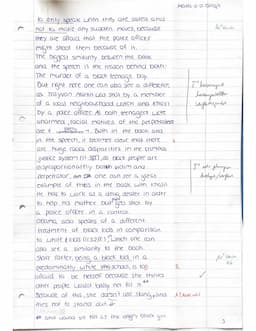 to only speak when they are asked and
not to make any sudden moves, because
they are afraid that the police officer
might shoot them because of it.
The biggest similarity between the book
and the speech is the reason behind both:
The murder of a black teenage boy.
But right here one can also see a difference,
as Trayvon Martin was shot by a member
of a local neighbourhood watch and Khalil
by a police officer. Both teenagers were
unarmed, racial motives of the perpetrators
are
Both in the book and
in the speech, it becomes clear that there
are huge racial disparities in the criminal
justice system
as black people are
disproportionately both victim and
perpetrator,
one can see a great
example of this in the book with Khalil.
He has to work as a drug dealer in order
to help his mother but gets shot by
a police officer in a control.
Obama also speaks of a different
treatment of black kids in comparison
to white kids
which one can
also see a similarity to the book.
Starr Carter, being a black kid in a
predominantly white
school, is too
afraid to be herself because she thinks
other people would judge her for it.
Because of this, she doesn't use slang, and
tries not to stand out
and would see her as the angry black girl